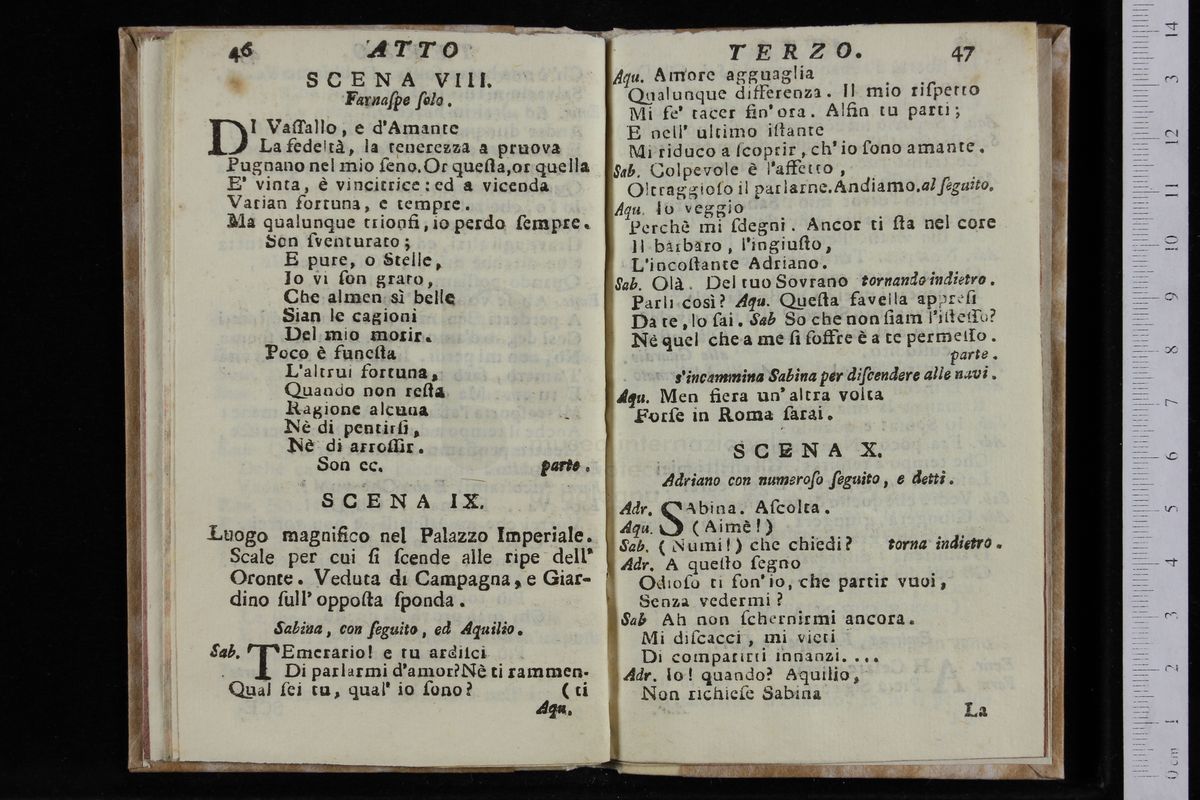 46 ATTO
SCENA VIII.
Farnaſpe ſolo.
DI Vaſſallo, e d'Amante
La fedeltà, la tenerezza a pruova
Pugnano nel mio ſeno. Or queſta, or quella
E' vinta, è vincitrice: ed a vicenda
Varian fortuna, e tempre.
Ma qualunque trionfi, io perdo ſempre.
Son ſventurato;
E pure, o Stelle,
Io vi ſon grato,
Che almen sì belle
Sian le cagioni
Del mio morir.
Poco è funeſta
L'altrui fortuna,
Quando non reſta
Ragione alcuna
Nè di pentirſi,
Nè di arroſſir.
Son ec. parte.
SCENA IX.
Luogo magnifico nel Palazzo Imperiale.
Scale per cui ſi ſcende alle ripe dell'
Oronte. Veduta di Campagna, e Giar-
dino ſull' oppoſta ſponda.
Sabina, con ſeguito, ed Aquilio.
Sab. TEmerario! e tu ardiſci
Di parlarmi d'amor? Nè ti rammen-
Qual ſei tu, qual' io ſono? (ti
Aqu.
TERZO. 47
Aqu. Amore agguaglia
Qualunque differenza. Il mio riſpetto
Mi fe' tacer fin' ora. Alfin tu parti;
E nell' ultimo iſtante
Mi riduco a ſcoprir, ch' io ſono amante.
Sab. Colpevole è l'affetto,
Oltraggioſo il parlarne. Andiamo. al ſeguito.
Aqu. Io veggio
Perchè mi ſdegni. Ancor ti ſta nel core
Il barbaro, l'ingiuſto,
L'incoſtante Adriano.
Sab. Olà. Del tuo Sovrano tornando indietro.
Parli così? Aqu. Queſta favella appreſi
Da te, lo ſai. Sab So che non ſiam l'iſteſſo?
Nè quel che a me ſi ſoffre è a te permeſſo.
parte.
s'incammina Sabina per diſcendere alle navi.
Aqu. Men fiera un' altra volta
Forſe in Roma ſarai.
SCENA X.
Adriano con numeroſo ſeguito, e detti.
Adr. SAbina. Aſcolta.
Aqu. (Aimè!)
Sab. (Numi!) che chiedi? torna indietro.
Adr. A queſto ſegno
Odioſo ti ſon' io, che partir vuoi,
Senza vedermi?
Sab Ah non ſchernirmi ancora.
Mi diſcacci, mi vieti
Di comparirti innanzi....
Adr. Io! quando? Aquilio,
Non richieſe Sabina
La